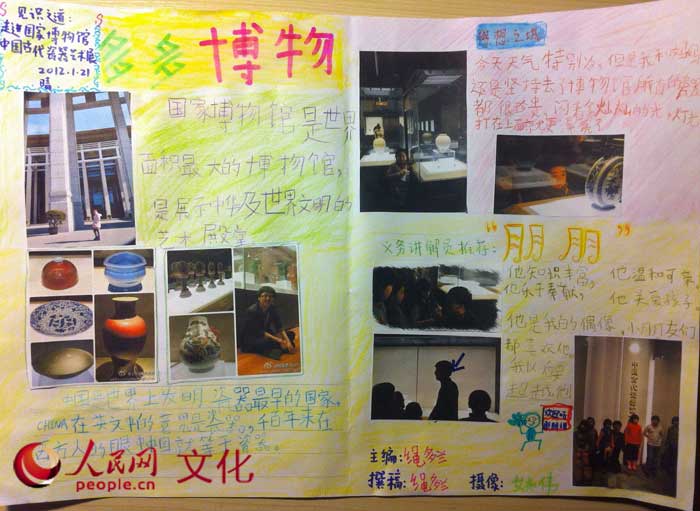 见识之道：
走进国家博物馆
中国古代瓷器艺术展
2012.1.21
晴
多多博物
国家博物馆是世界
面积最大的博物馆，
是展示中华及世界文明的
艺术殿堂
中国是世界上发明瓷器最早的国家，
CHINA在英文中的意思是瓷器，千百年来在
西方人的眼中中国就等于瓷器。
今天天气特别冷，但是我和
还是坚持去了博物馆，所有的瓷器
都很珍贵，闪着灿灿的光，灯光
打在上面
义务讲解员推荐：
“朋朋”
他知识丰富，他温和可亲，
他乐于奉献，他关爱孩子
他是我的偶像，小朋友们
都喜欢他，
主编：绳多兰
撰稿：绳多兰
摄像：
人民网 文化
people.cn